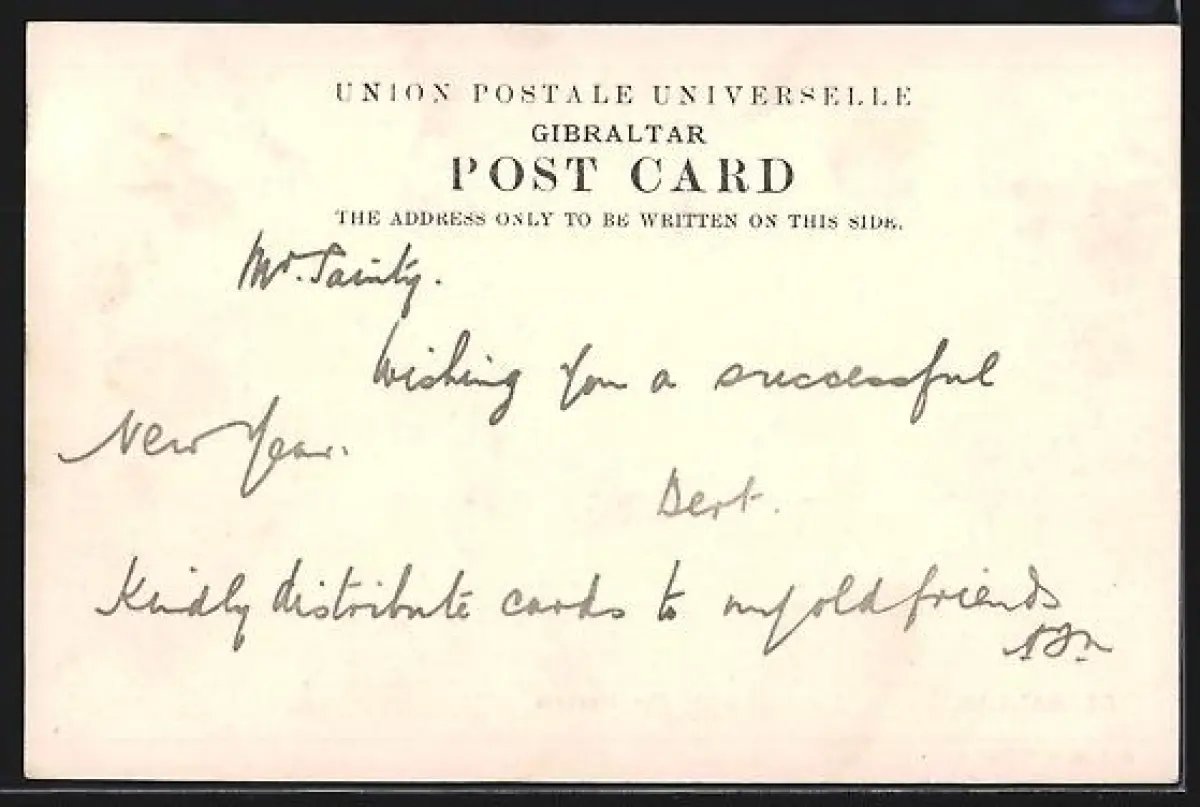 UNION POSTALE UNIVERSELLE
GIBRALTAR
POST CARD
THE ADDRESS ONLY TO BE WRITTEN ON THIS SIDE.
Mr. Sainty.
Wishing you a successful
New Year.
Bert.
Kindly distribute cards to my old friends